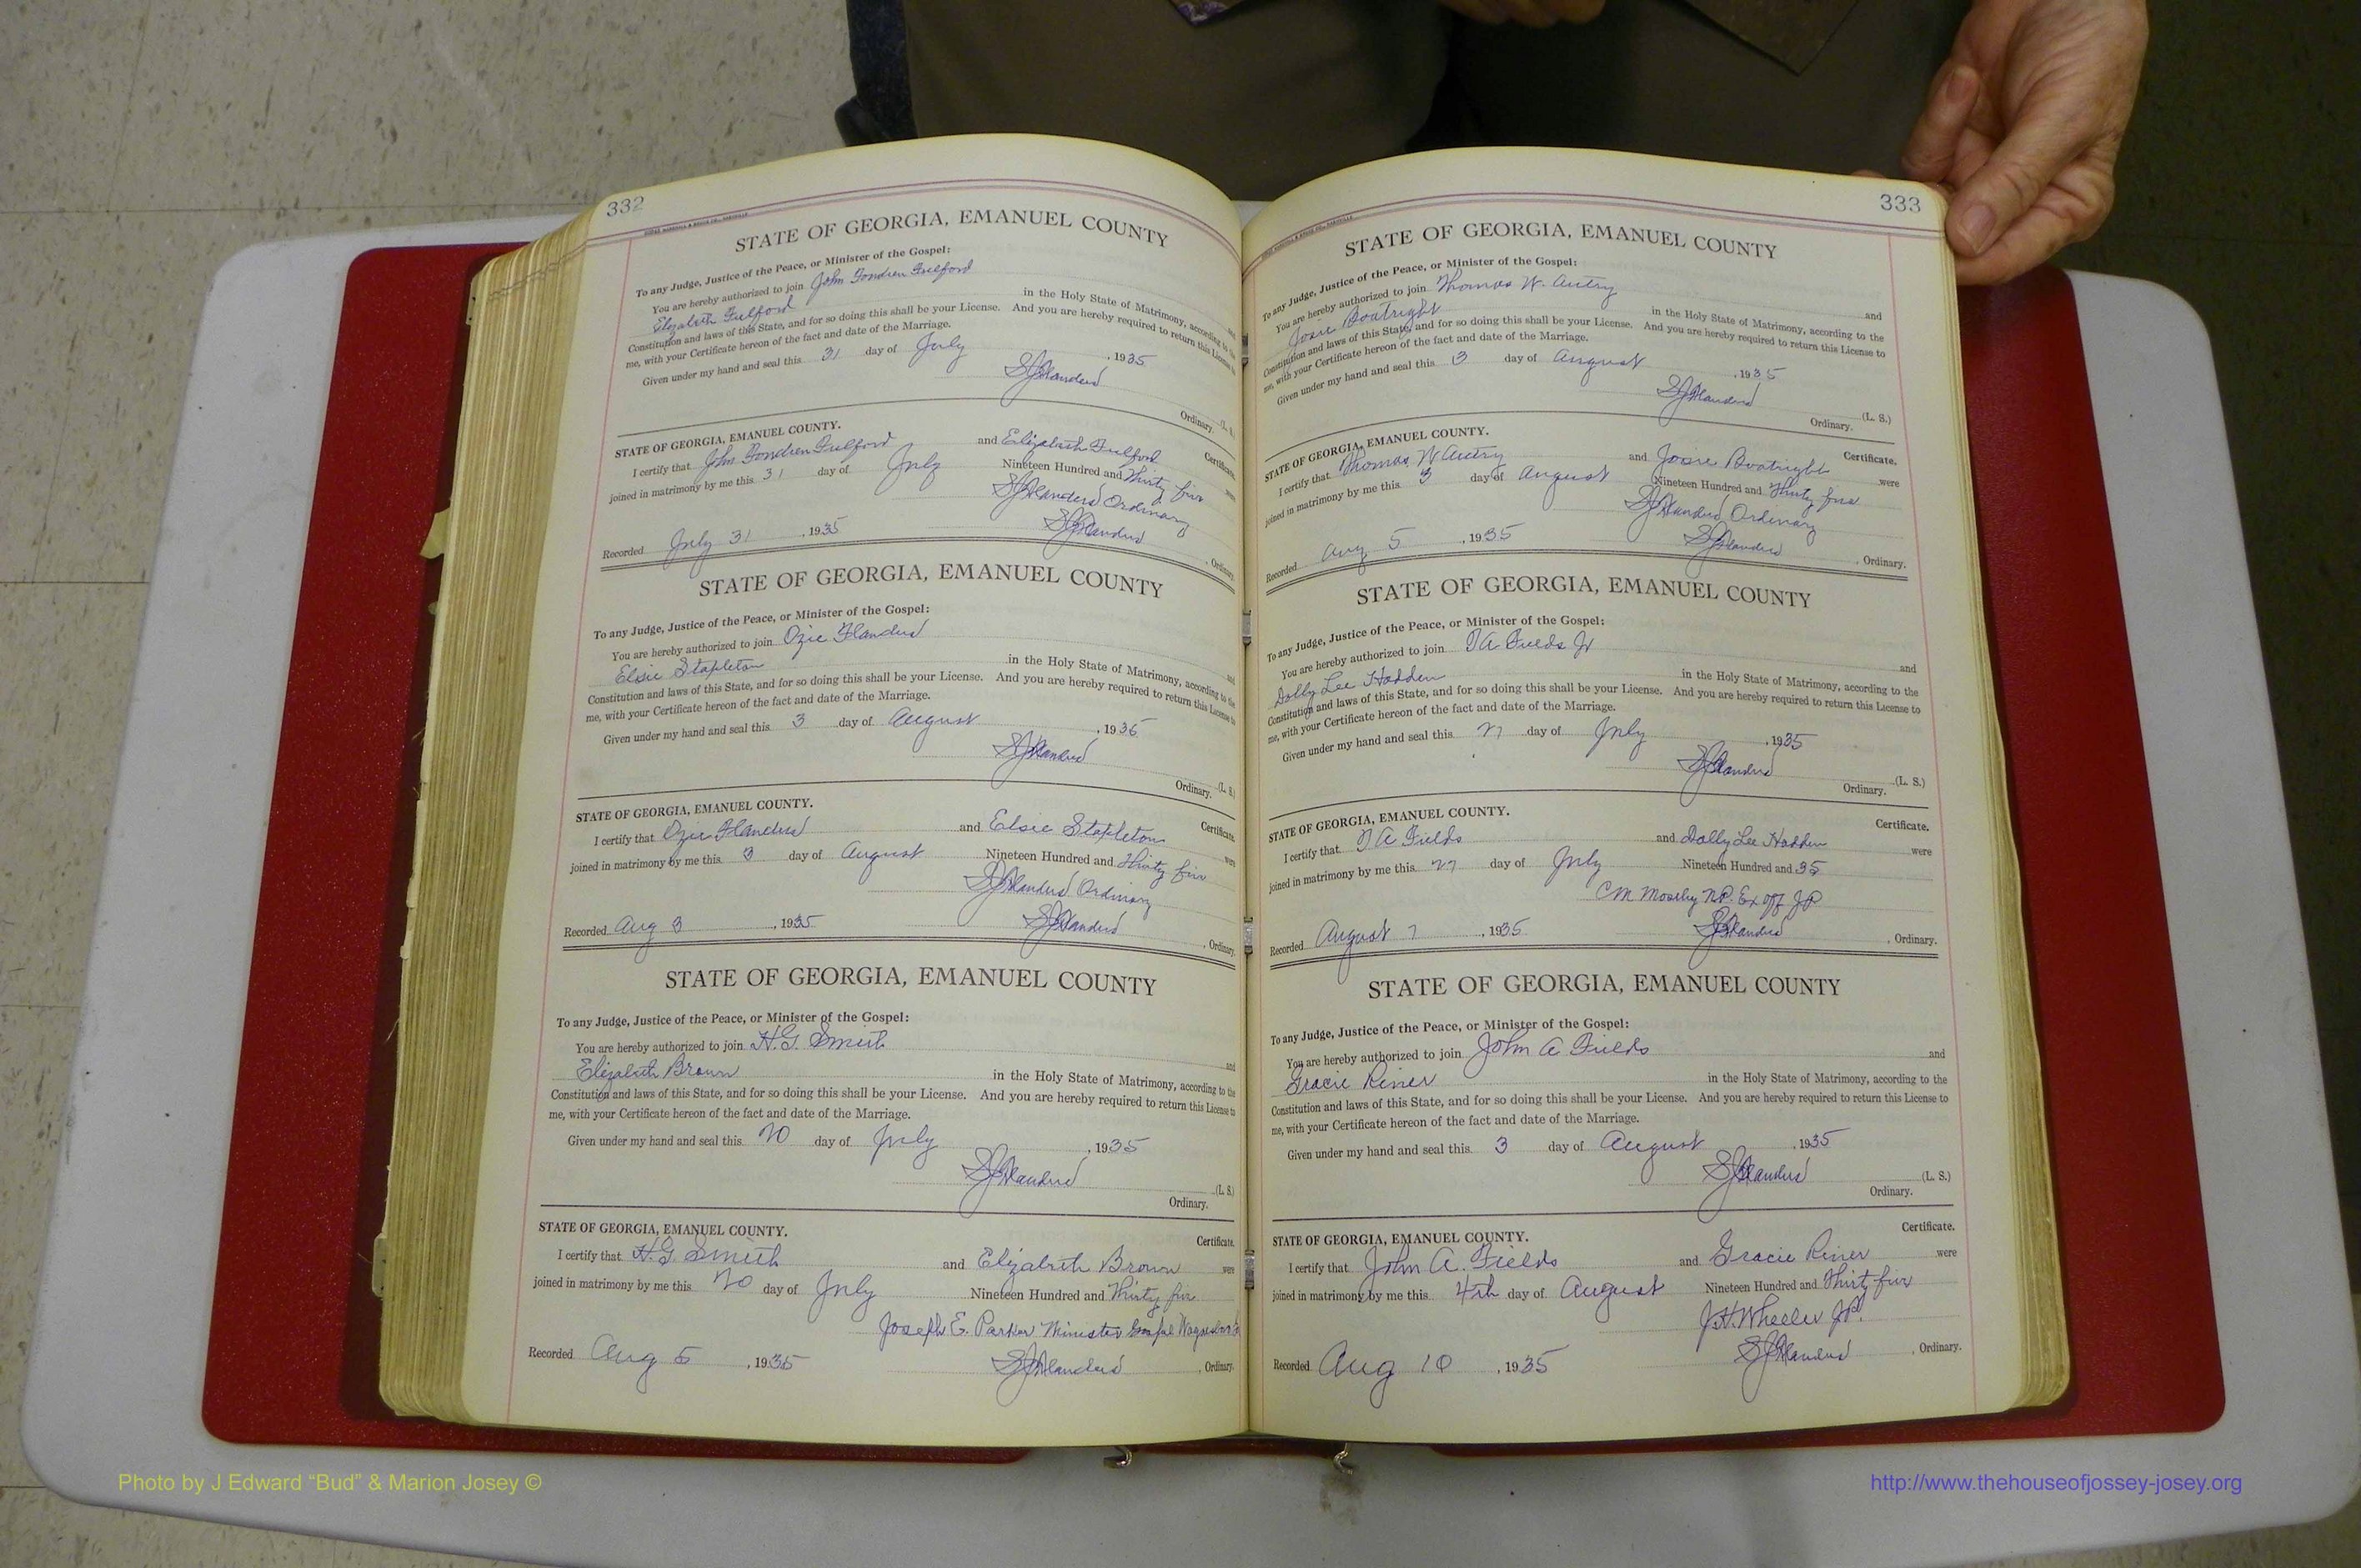 332
STATE OF GEORGIA, EMANUEL COUNTY
To any Judge, Justice of the Peace, or Minister of the Gospel:
You are hereby authorized to join John Fondren Fulford and
Elizabeth Fulford in the Holy State of Matrimony, according to the
Constitution and laws of this State, and for so doing this shall be your License. And you are hereby required to return this License to
me, with your Certificate hereon of the fact and date of the Marriage.
Given under my hand and seal this 31 day of July, 1935
S J Flanders (L. S.)
Ordinary.
STATE OF GEORGIA, EMANUEL COUNTY. Certificate.
I certify that John Fondren Fulford and Elizabeth Fulford were
joined in matrimony by me this 31 day of July Nineteen Hundred and Thirty five
S J Flanders Ordinary
Recorded July 31, 1935 S J Flanders, Ordinary.
STATE OF GEORGIA, EMANUEL COUNTY
To any Judge, Justice of the Peace, or Minister of the Gospel:
You are hereby authorized to join Ozie Flanders and
Elsie Stapleton in the Holy State of Matrimony, according to the
Constitution and laws of this State, and for so doing this shall be your License. And you are hereby required to return this License to
me, with your Certificate hereon of the fact and date of the Marriage.
Given under my hand and seal this 3 day of August, 1935
S J Flanders (L. S.)
Ordinary.
STATE OF GEORGIA, EMANUEL COUNTY. Certificate.
I certify that Ozie Flanders and Elsie Stapleton were
joined in matrimony by me this 3 day of August Nineteen Hundred and Thirty five
S J Flanders Ordinary
Recorded Aug 3, 1935 S J Flanders, Ordinary.
STATE OF GEORGIA, EMANUEL COUNTY
To any Judge, Justice of the Peace, or Minister of the Gospel:
You are hereby authorized to join H. G. Smith and
Elizabeth Brown in the Holy State of Matrimony, according to the
Constitution and laws of this State, and for so doing this shall be your License. And you are hereby required to return this License to
me, with your Certificate hereon of the fact and date of the Marriage.
Given under my hand and seal this 20 day of July, 1935
S J Flanders (L. S.)
Ordinary.
STATE OF GEORGIA, EMANUEL COUNTY. Certificate.
I certify that H. G. Smith and Elizabeth Brown were
joined in matrimony by me this 20 day of July Nineteen Hundred and Thirty five
Joseph E. Parker Minister Gospel
Recorded Aug 5, 1935 S J Flanders, Ordinary.
333
STATE OF GEORGIA, EMANUEL COUNTY
To any Judge, Justice of the Peace, or Minister of the Gospel:
You are hereby authorized to join Thomas W. Autry and
Josie Boatright in the Holy State of Matrimony, according to the
Constitution and laws of this State, and for so doing this shall be your License. And you are hereby required to return this License to
me, with your Certificate hereon of the fact and date of the Marriage.
Given under my hand and seal this 3 day of August, 1935
S J Flanders (L. S.)
Ordinary.
STATE OF GEORGIA, EMANUEL COUNTY. Certificate.
I certify that Thomas W Autry and Josie Boatright were
joined in matrimony by me this 3 day of August Nineteen Hundred and Thirty five
S J Flanders Ordinary
Recorded Aug 5, 1935 S J Flanders, Ordinary.
STATE OF GEORGIA, EMANUEL COUNTY
To any Judge, Justice of the Peace, or Minister of the Gospel:
You are hereby authorized to join J A Fields Jr and
Dolly Lee Hadden in the Holy State of Matrimony, according to the
Constitution and laws of this State, and for so doing this shall be your License. And you are hereby required to return this License to
me, with your Certificate hereon of the fact and date of the Marriage.
Given under my hand and seal this 27 day of July, 1935
S J Flanders (L. S.)
Ordinary.
STATE OF GEORGIA, EMANUEL COUNTY. Certificate.
I certify that J A Fields and Dolly Lee Hadden were
joined in matrimony by me this 27 day of July Nineteen Hundred and 35
C M Moseley N.P. Ex off J P
Recorded August 7, 1935 S J Flanders, Ordinary.
STATE OF GEORGIA, EMANUEL COUNTY
To any Judge, Justice of the Peace, or Minister of the Gospel:
You are hereby authorized to join John A Fields and
Gracie Riner in the Holy State of Matrimony, according to the
Constitution and laws of this State, and for so doing this shall be your License. And you are hereby required to return this License to
me, with your Certificate hereon of the fact and date of the Marriage.
Given under my hand and seal this 3 day of August, 1935
S J Flanders (L. S.)
Ordinary.
STATE OF GEORGIA, EMANUEL COUNTY. Certificate.
I certify that John A. Fields and Gracie Riner were
joined in matrimony by me this 4th day of August Nineteen Hundred and Thirty five
J. H. Wheeler J.P.
Recorded Aug 10, 1935 S J Flanders, Ordinary.
Photo by J Edward “Bud” & Marion Josey ©
http://www.thehouseofjossey-josey.org